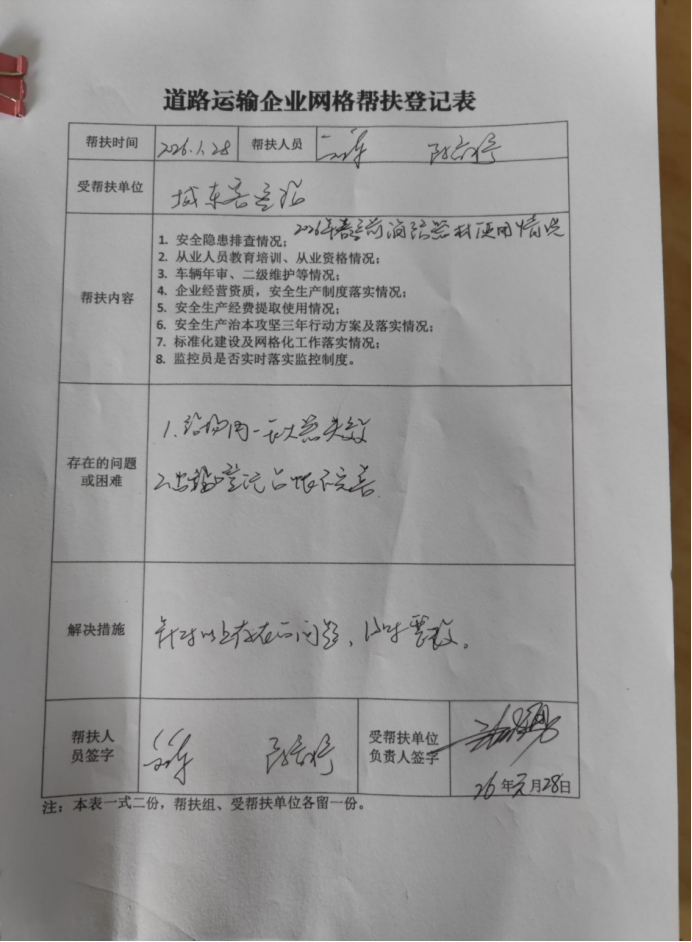 道路运输企业网格帮扶登记表
帮扶时间 2026.1.28 帮扶人员
受帮扶单位 城东客运站
2026年春运前消防器材使用情况
帮扶内容
1. 安全隐患排查情况；
2. 从业人员教育培训、从业资格情况；
3. 车辆年审、二级维护等情况；
4. 企业经营资质，安全生产制度落实情况；
5. 安全生产经费提取使用情况；
6. 安全生产治本攻坚三年行动方案及落实情况；
7. 标准化建设及网格化工作落实情况；
8. 监控员是否实时落实监控制度。
存在的问题
或困难
1.站场内一灭火器失效
2.登记台帐不完善
解决措施
针对以上存在的问题，及时整改。
帮扶人
员签字
受帮扶单位
负责人签字
26年元月28日
注：本表一式二份，帮扶组、受帮扶单位各留一份。